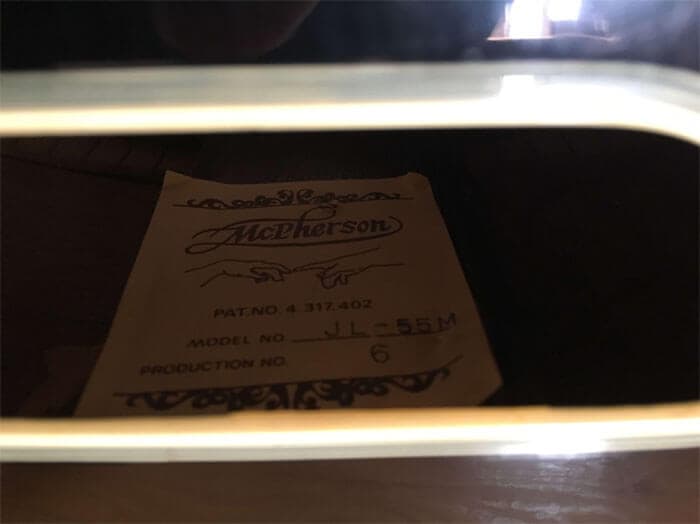 McPherson
PAT. NO. 4.317.402
MODEL NO. JL-55M
PRODUCTION NO. 6